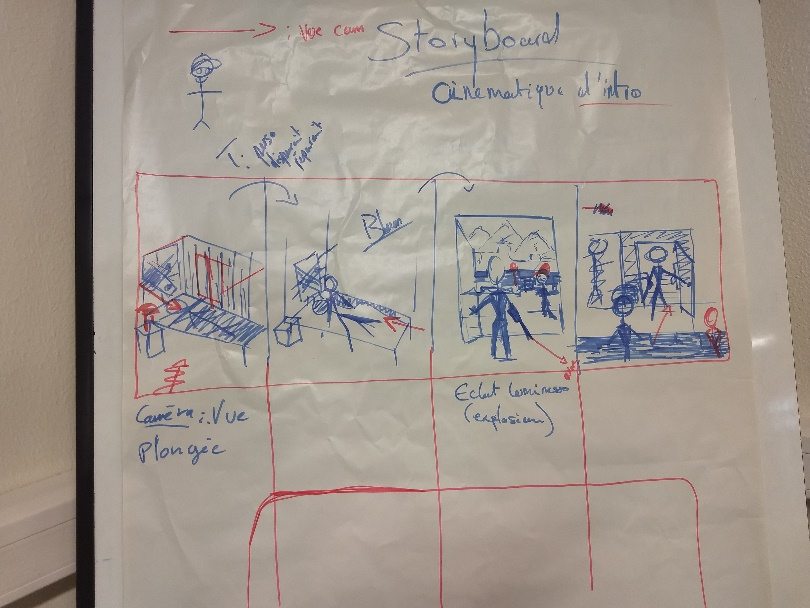 : Vue cam
Storyboard
Cinématique d'intro
T: perso
disparait
reparait
Caméra : Vue
plongée
Eclat lumineux
(explosion)